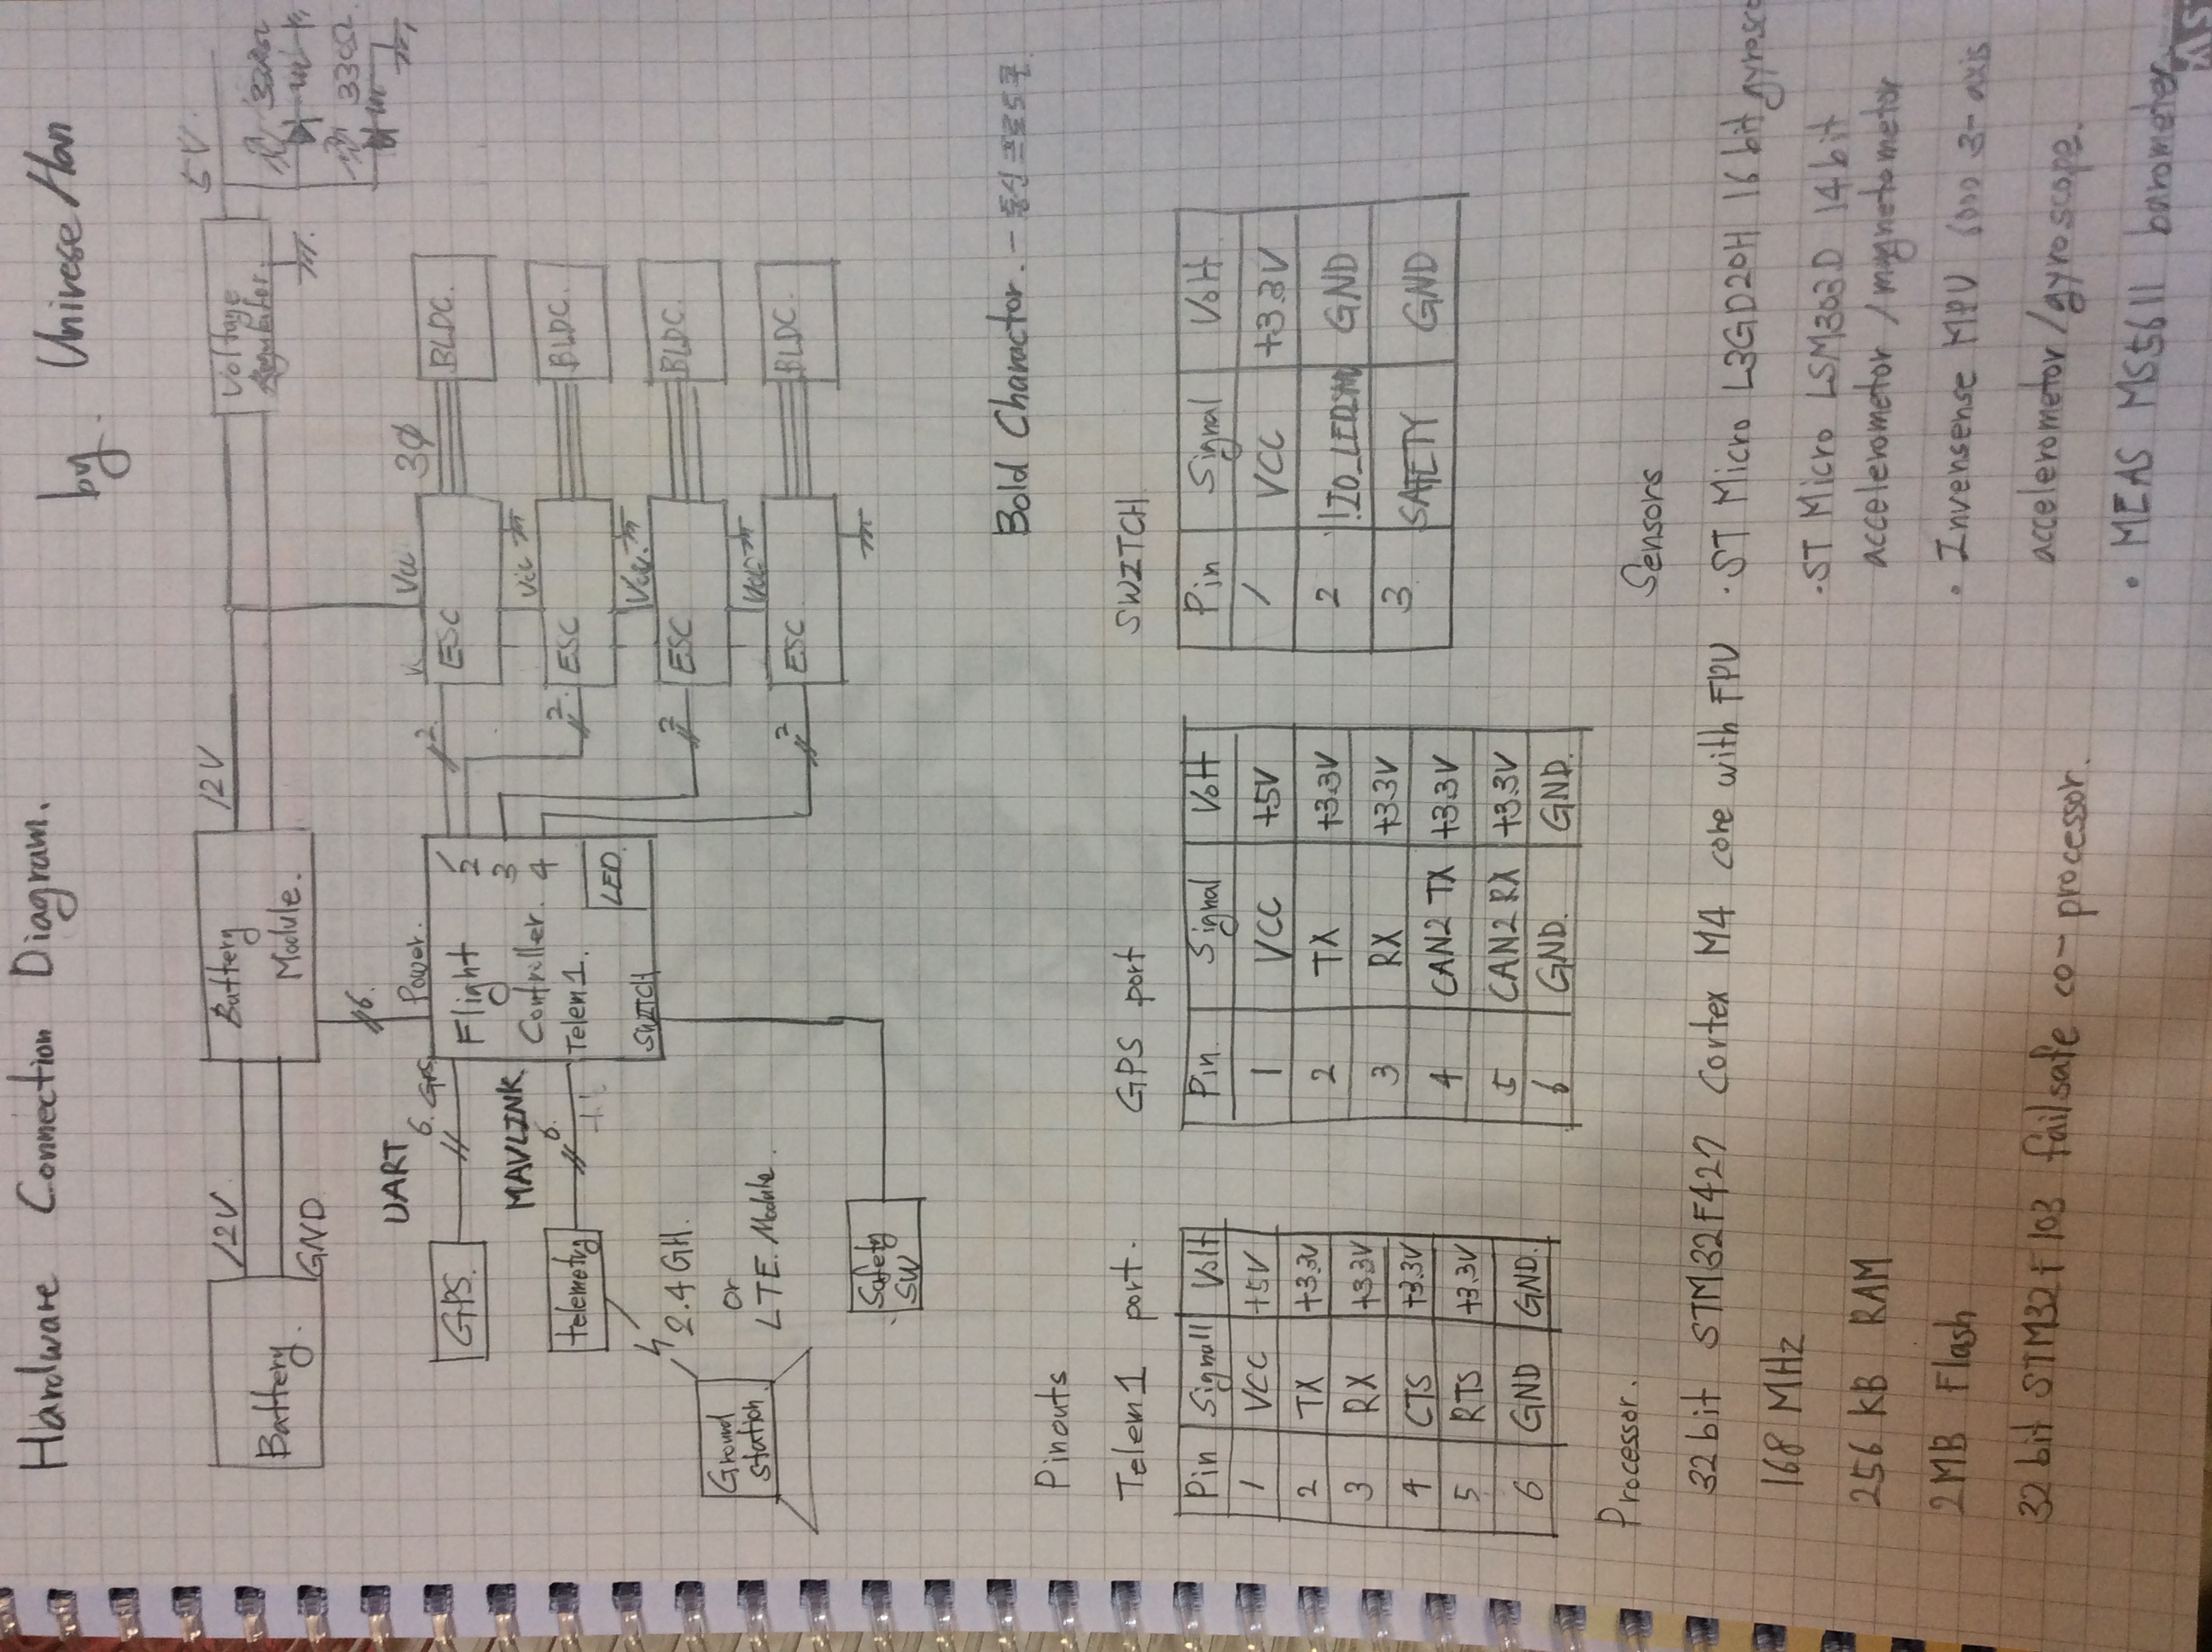 Hardware Connection Diagram.
by. Univese Han
Battery.
12V
GND
Battery
Module.
12V
Voltage
5V
330Ω
330Ω
6.
UART
6. GPS
Power.
GPS.
Flight
Controller.
Telem1.
SWITCH
LED.
1
2
3
4
MAVLINK
6.
telemetry
2.4GH.
or
LTE. Module.
Ground
station.
Safety
SW
2.
Vcc
ESC
3Ø
BLDC.
2.
Vcc
ESC
BLDC.
2
Vcc.
ESC
BLDC.
2
Vcc
ESC
BLDC.
Bold Charactor. - 통신 프로토콜
Pinouts
Telem1 port.
Pin Signall Volt
1 VCC +5V
2 TX +3.3V
3 RX +3.3V
4 CTS +3.3V
5 RTS +3.3V
6 GND GND.
GPS port
Pin. Signal Volt
1 VCC +5V
2 TX +3.3V
3 RX +3.3V
4 CAN2 TX +3.3V
5 CAN2 RX +3.3V
6 GND. GND.
SWITCH
Pin Signal Volt
1 VCC +3.3V
2 GND
3 SAFETY GND
Processor.
32bit STM32F427 Cortex M4 core with FPU
168 MHz
256 KB RAM
2MB Flash
32bit STM32F103 failsafe co-processor.
Sensors
·ST Micro L3GD20H 16 bit gyrosc
·ST Micro LSM303D 14bit
accelerometor /magnetometor
• Invensense MPU 6000 3-axis
accelerometor/gyroscope.
• MEAS MS5611 barometer.